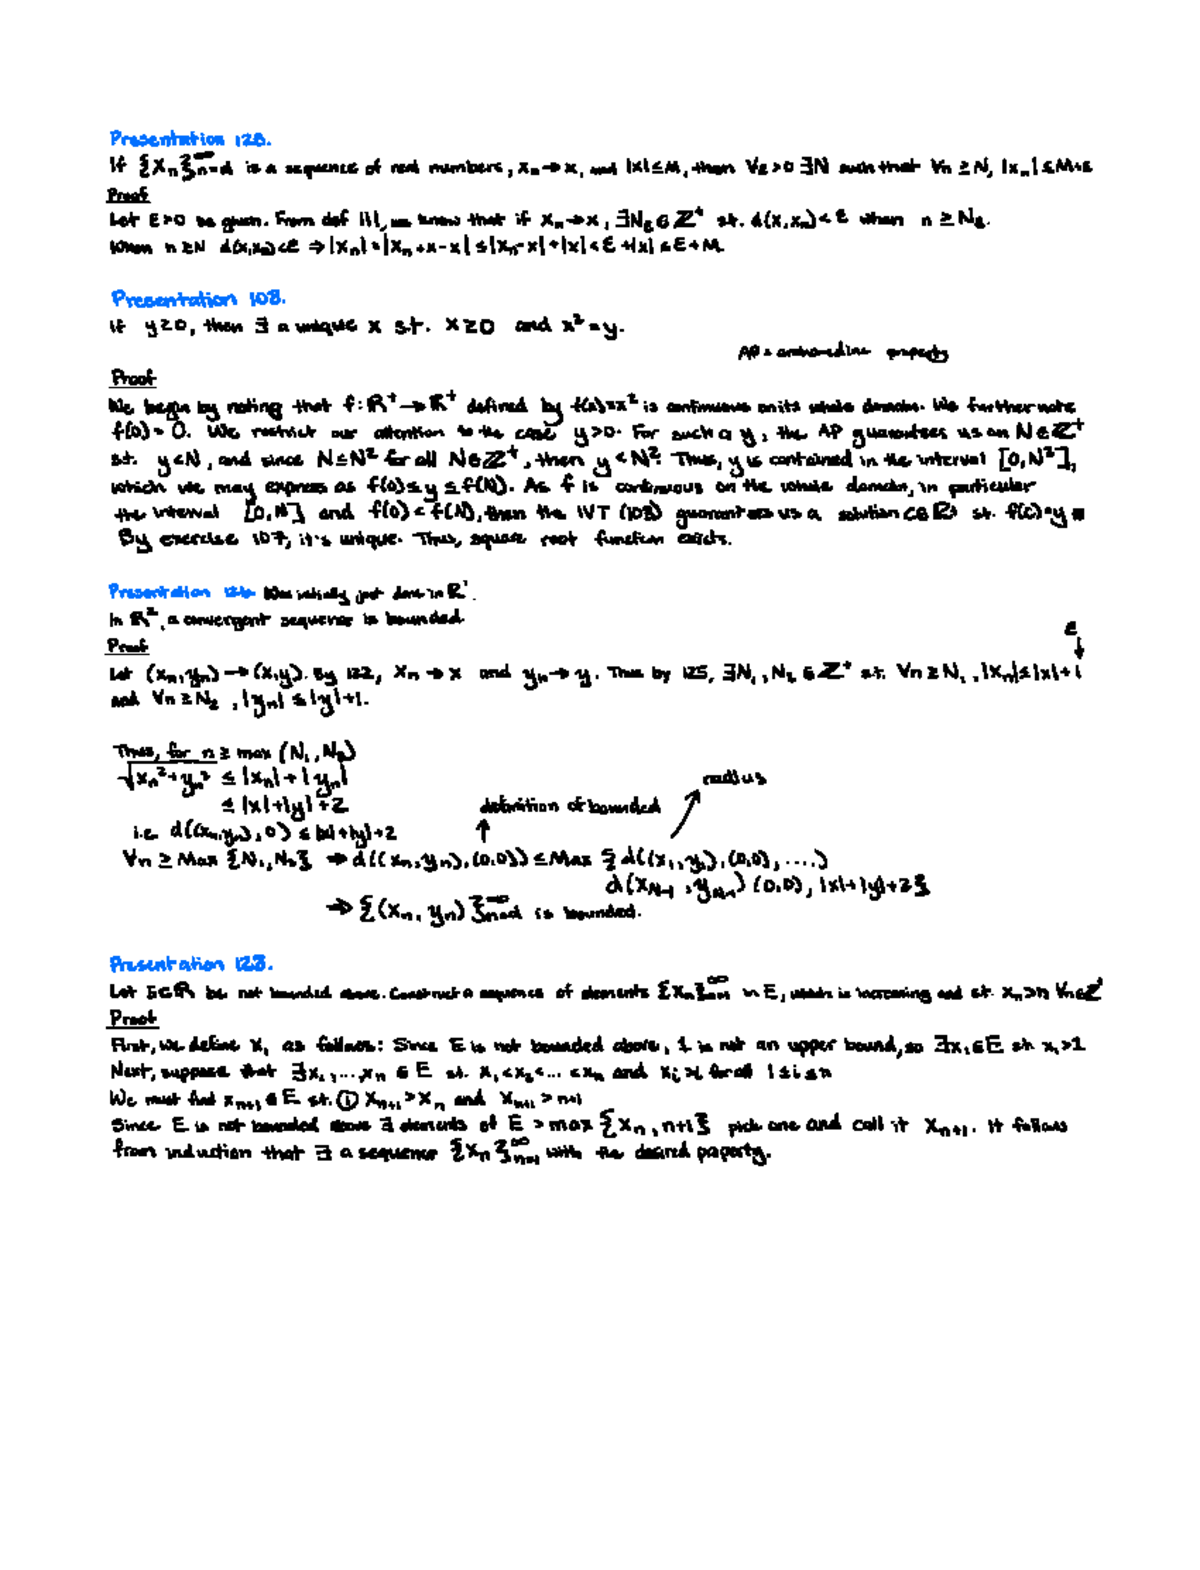 Presentation 128.
If {xₙ}ₙ₌₁^∞ is a sequence of real numbers, xₙ→x, and |x|≤M, then ∀ε>0 ∃N such that ∀n≥N, |xₙ|≤M+ε
Proof
Let ε>0 be given. From def 111, we know that if xₙ→x, ∃N_ε∈ℤ⁺ st. d(x,xₙ)<ε when n≥N_ε.
When n≥N d(x,xₙ)<ε ⇒ |xₙ|=|xₙ+x-x|≤|xₙ-x|+|x|<ε+|x|≤ε+M.
Presentation 108.
If y≥0, then ∃ a unique x s.t. x≥0 and x²=y.
AP = archimedian property
Proof
We begin by noting that f:ℝ⁺→ℝ⁺ defined by f(x)=x² is continuous on its whole domain. We further note
f(0)=0. We restrict our attention to the case y>0. For such a y, the AP guarantees us an N∈ℤ⁺
s.t. y<N, and since N≤N² for all N∈ℤ⁺, then y<N². Thus, y is contained in the interval [0,N²],
which we may express as f(0)≤y≤f(N). As f is continuous on the whole domain, in particular
the interval [0,N] and f(0)<f(N), then the IVT (103) guarantees us a solution c∈ℝ⁺ st. f(c)=y
By exercise 107, it's unique. Thus, square root function exists.
Presentation 126 Was initially just done in ℝ¹.
In ℝ², a convergent sequence is bounded.
Proof
ε
Let (xₙ,yₙ)→(x,y). By 122, xₙ→x and yₙ→y. Thus by 125, ∃N₁,N₂∈ℤ⁺ s.t. ∀n≥N₁, |xₙ|≤|x|+1
and ∀n≥N₂, |yₙ|≤|y|+1.
Thus, for n≥max(N₁,N₂)
√xₙ²+yₙ² ≤|xₙ|+|yₙ|
radius
≤|x|+|y|+2
definition of bounded
i.e. d((xₙ,yₙ),0)≤|x|+|y|+2
∀n≥Max{N₁,N₂} ⇒ d((xₙ,yₙ),(0,0))≤Max {d((x₁,y₁),(0,0),....)
d(x_N-1,y_N-1)(0,0),|x|+|y|+2}
⇒ {(xₙ,yₙ)}ₙ₌₁^∞ is bounded.
Presentation 123.
Let E⊂ℝ be not bounded above. Construct a sequence of elements {xₙ}ₙ₌₁^∞ in E, which is increasing and st. xₙ>n ∀n∈ℤ⁺
Proof
First, we define x₁ as follows: Since E is not bounded above, 1 is not an upper bound, so ∃x₁∈E st. x₁>1
Next, suppose that ∃x₁,...,xₙ∈E st. x₁<x₂<...<xₙ and xᵢ>i for all 1≤i≤n
We must find xₙ₊₁∈E st. ① xₙ₊₁>xₙ and xₙ₊₁>n+1
Since E is not bounded above ∃ elements of E > max {xₙ,n+1} pick one and call it xₙ₊₁. It follows
from induction that ∃ a sequence {xₙ}ₙ₌₁^∞ with the desired property.